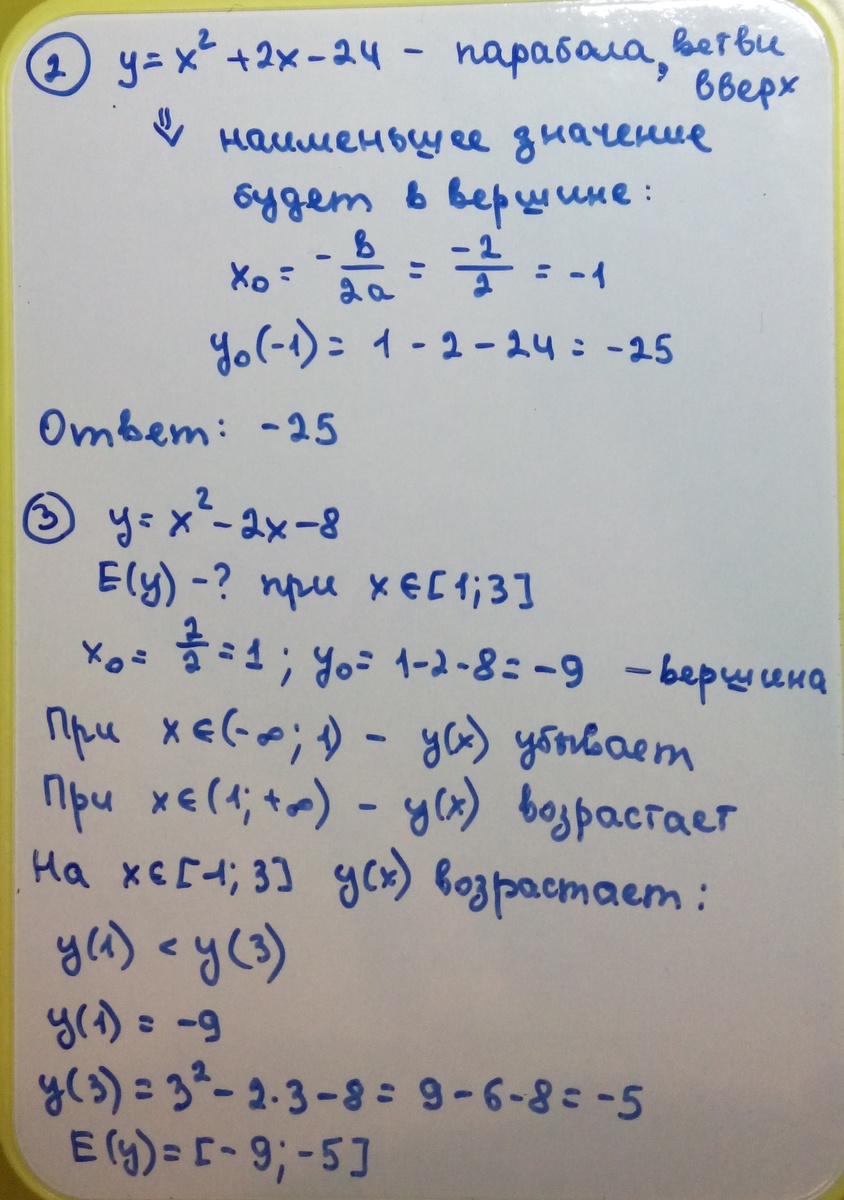 2 y = x² + 2x - 24 - парабола, ветви
вверх
⇓ наименьшее значение
будет в вершине:
x₀ = -b/2a = -2/2 = -1
y₀(-1) = 1 - 2 - 24 = -25
Ответ: -25
3 y = x² - 2x - 8
E(y) - ? при x ∈ [1; 3]
x₀ = 2/2 = 1; y₀ = 1 - 2 - 8 = -9 - вершина
При x ∈ (-∞; 1) - y(x) убывает
При x ∈ (1; +∞) - y(x) возрастает
На x ∈ [1; 3] y(x) возрастает:
y(1) < y(3)
y(1) = -9
y(3) = 3² - 2·3 - 8 = 9 - 6 - 8 = -5
E(y) = [-9; -5]